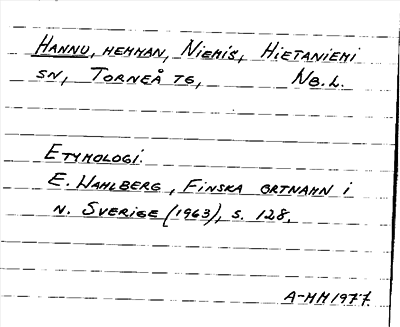 HANNU, HEMMAN, NIEMIS, HIETANIEMI
SN, TORNEÅ TG, NB.L.
ETYMOLOGI:
E. WAHLBERG, FINSKA ORTNAMN I
N. SVERIGE (1963), S. 128.
A-MH 1977.